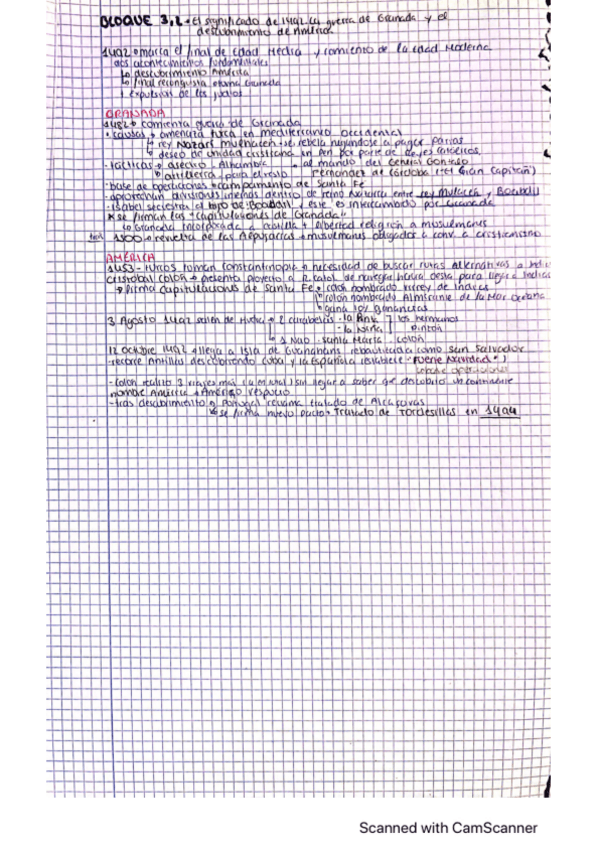 BLOQUE 3.2 → El significado de 1492. La guerra de Granada y el
descubrimiento de América.
1492 → marca el final de Edad Media y comienzo de la Edad Moderna
dos acontecimientos fundamentales
↳ descubrimiento América
↳ final reconquista toma Granada
+ expulsión de los judíos
GRANADA
1482 → comienza guerra de Granada
· causas → amenaza turca en mediterráneo occidental
↳ rey Nazarí Muenacen se rebela negándose a pagar parias
↳ deseo de unidad cristiana en Pen por parte de Reyes Católicos
- tácticas → asedio Alhambra · al mando del General Gonzalo
↳ artillería para Fernández de Córdoba ("el Gran Capitán")
- base de operaciones → campamento de Santa Fe
- aprovechan divisiones internas dentro de reino Nazarí entre rey y Boabdil
- Isabel secuestra el hijo de Boabdil y este es intercambiado por Granada
* se firman las "capitulaciones de Granada"
↳ Granada incorporada a Castilla + libertad religión a musulmanes
1500 → revuelta de las Alpujarras → musulmanes obligados a conv. a cristianismo
AMÉRICA
1453 - turcos toman Constantinopla → necesidad de buscar rutas alternativas a Indi
Cristobal Colón → presenta proyecto a R. Catol. de navegar hacia oeste para llegar a Indias
→ firma Capitulaciones de Santa Fe → Colón nombrado virrey de Indias
↳ Colón nombrado Almirante de la Mar Océana
↳ gana 10% ganancias
3 Agosto 1492 salen de Huelva → 2 carabelas - la Pinta los hermanos
- la Niña Pinzón
1 Nao - Santa María → Colón
12 octubre 1492 → llega a Isla de Guanahani rebautizada como San Salvador
- recorre Antillas descubriendo Cuba y la Española establece "Fuerte Navidad"
operaciones
- Colón realizó 3 viajes más sin llegar a saber que descubrió un continente
nombre América → Américo Vespucio
- tras descubrimiento Portugal reclama tratado de Alcaçovas
↳ se firma nuevo pacto → Tratado de Tordesillas en 1494
Scanned with CamScanner